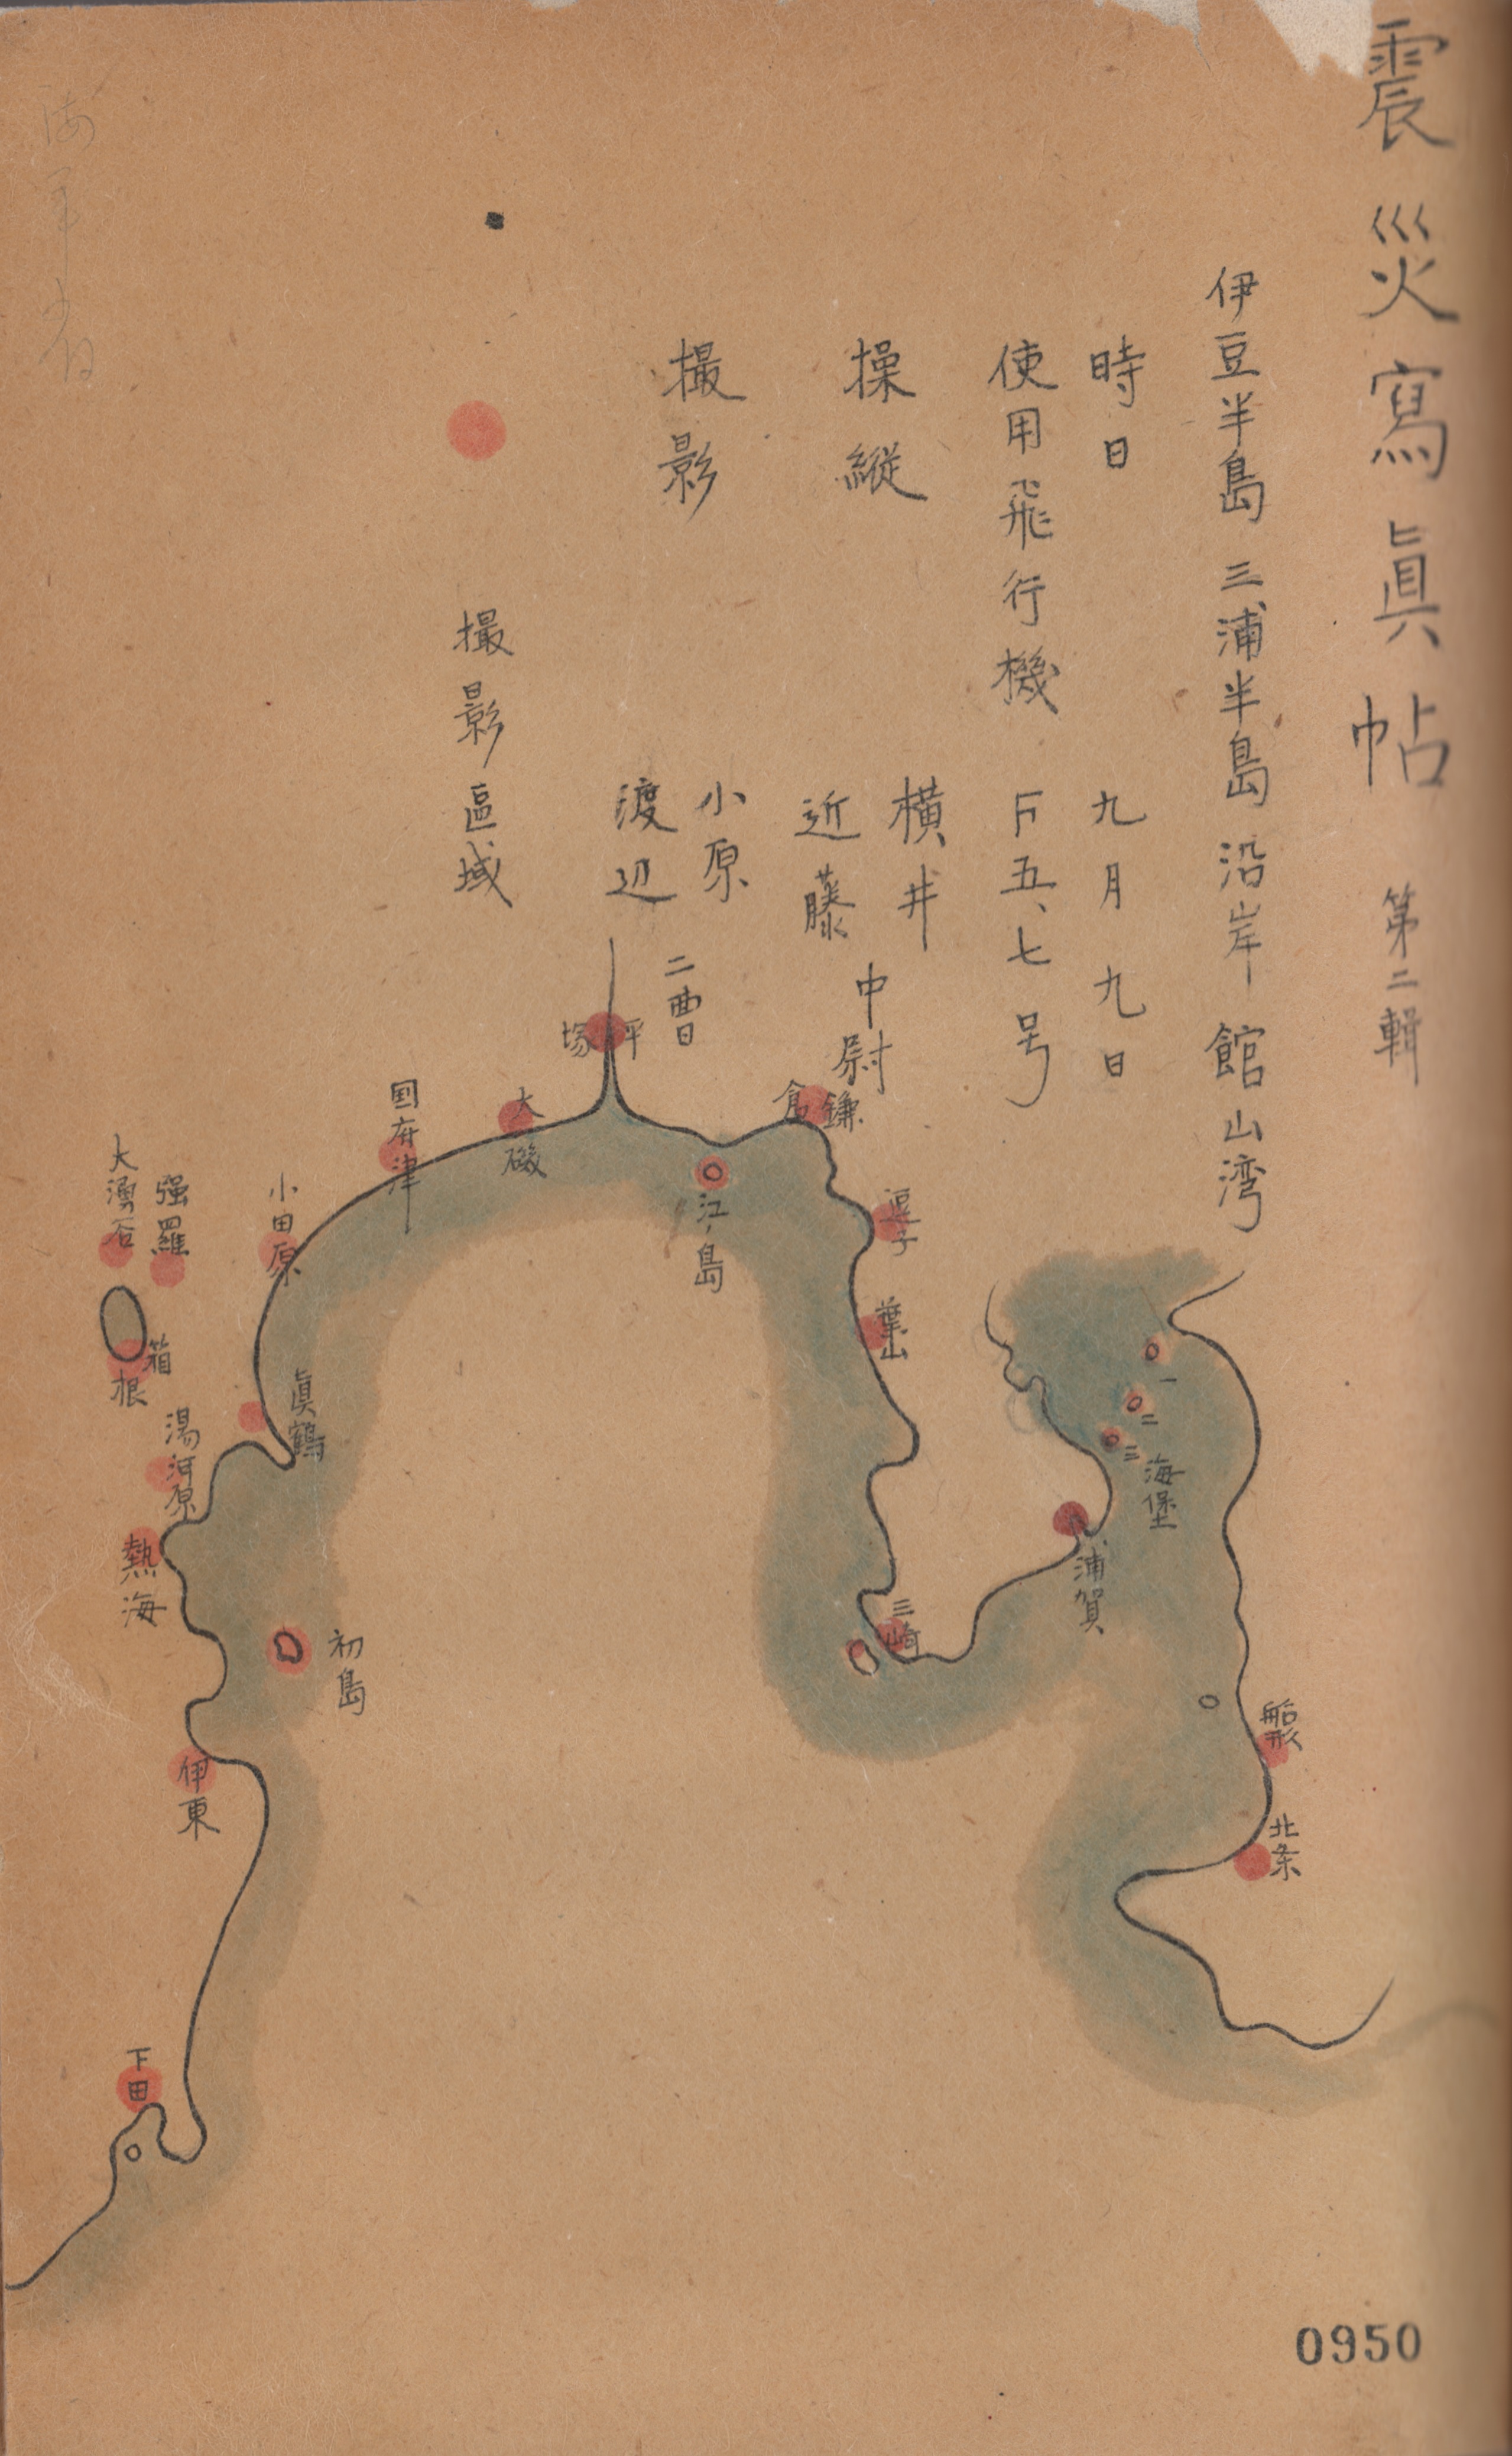 震災寫眞帖 第二輯
伊豆半島 三浦半島 沿岸 館山湾
時日 九月九日
使用飛行機 F五、七号
操縦 横井 近藤 中尉
撮影 小原 渡辺 二曹
撮影區域
平塚
大磯
国府津
小田原
强羅
大湧谷
箱根
眞鶴
湯河原
熱海
初島
伊東
下田
江ノ島
鎌倉
逗子
葉山
三崎
浦賀
一
二
三
海堡
船形
北条
0950